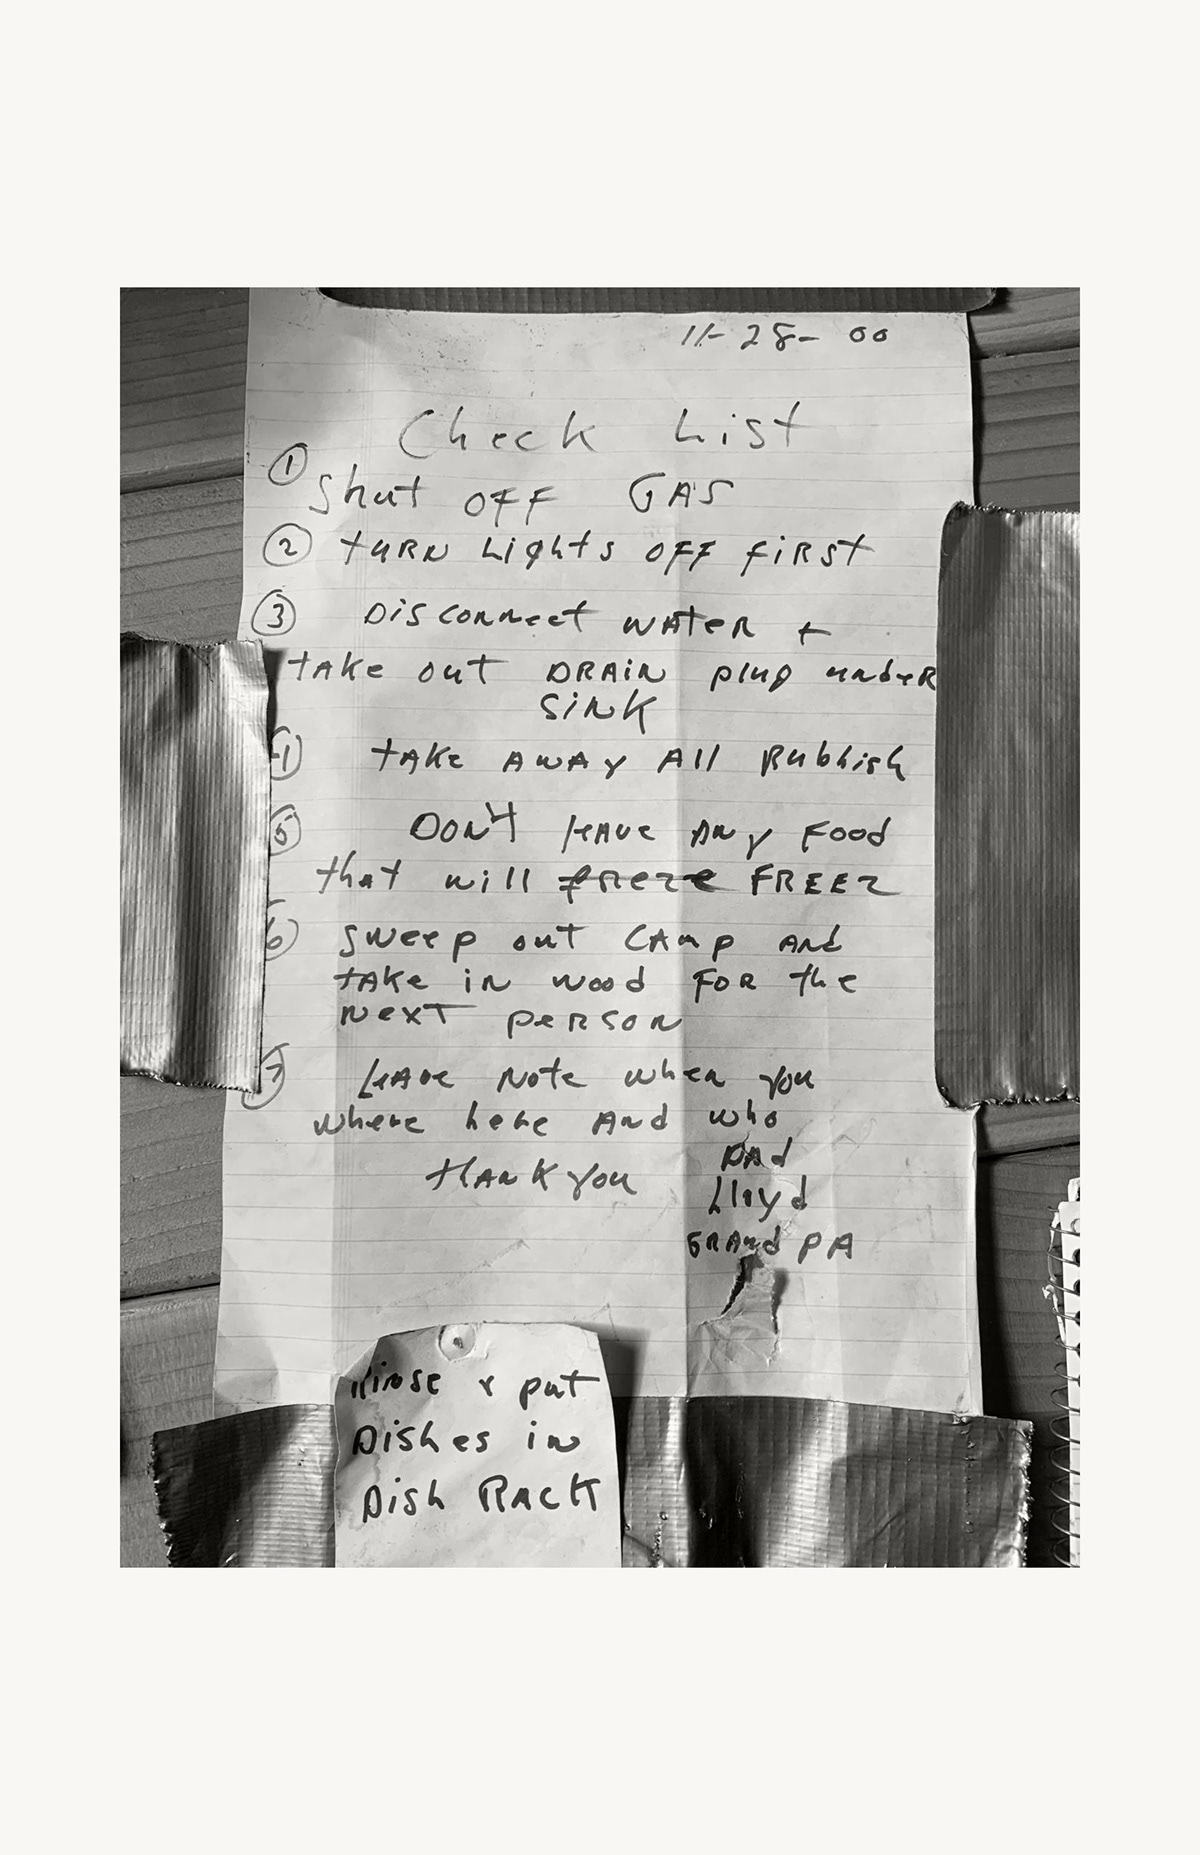 11-28-00
Check List
① Shut OFF GAS
② turn Lights off first
③ Disconnect water +
take out DRAIN plug under
sink
④ take away All Rubbish
⑤ DON't LeAve Any Food
that will freeze FREEZ
⑥ Sweep out CAmp And
take in wood FOR the
next person
⑦ LeAve Note when you
where here And who
thank you
DAd
Lloyd
GRAnd PA
Rinse & put
Dishes in
Dish RACK